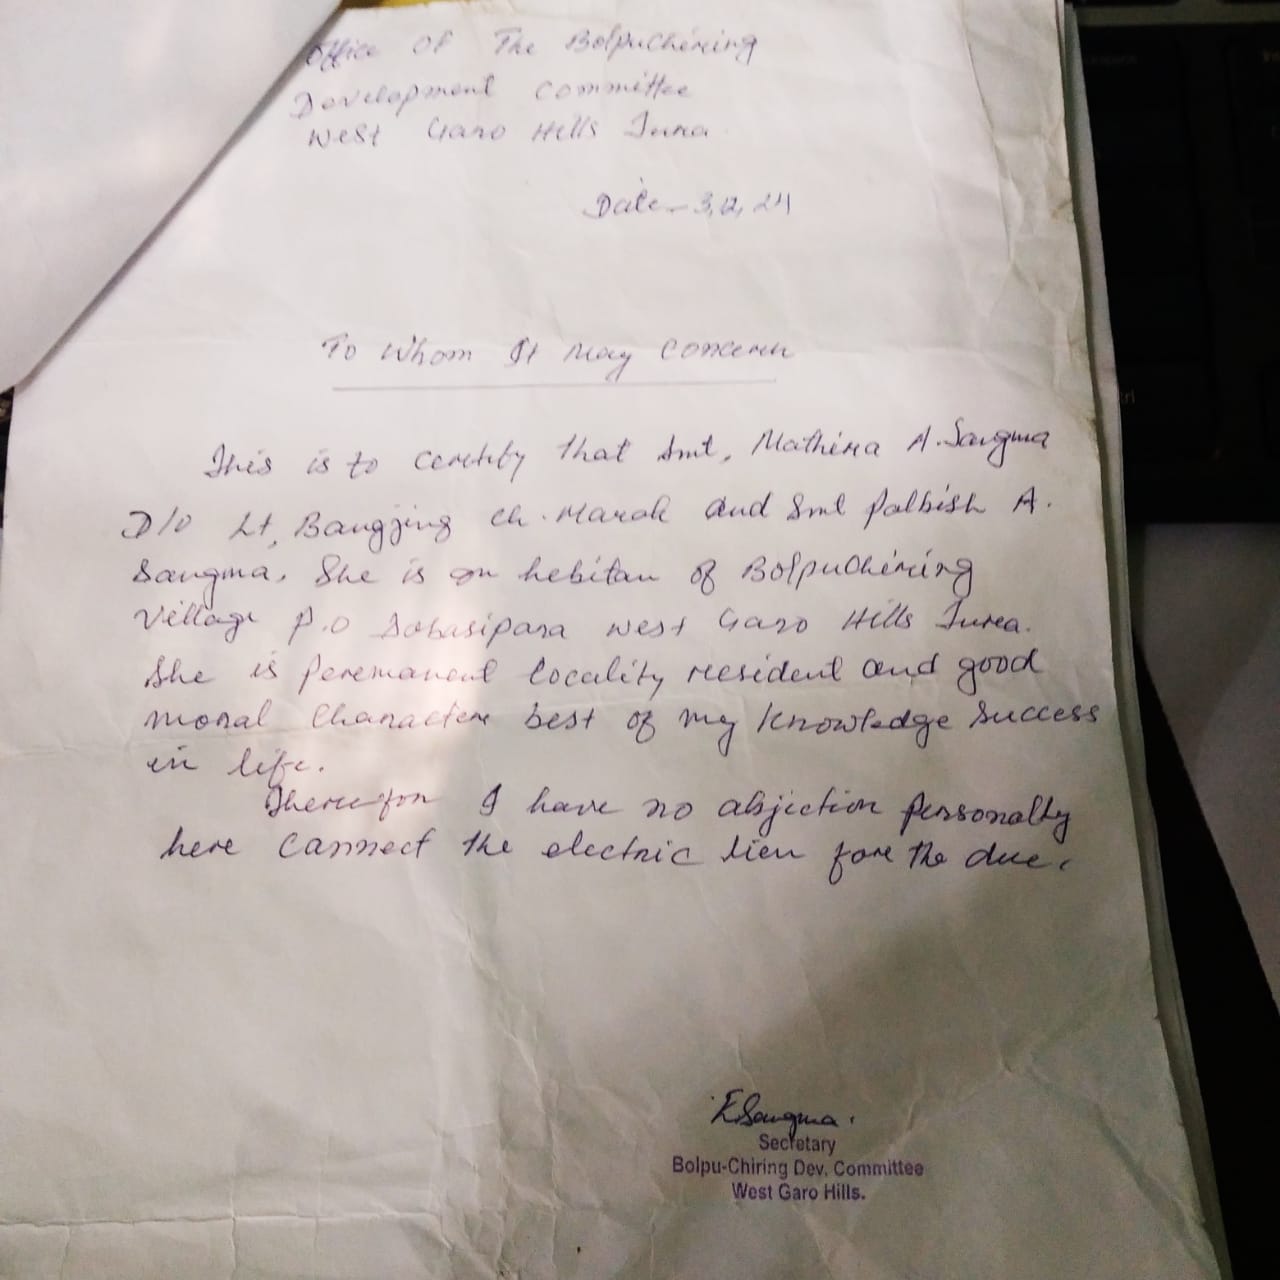 Office Of The Bolpuchiring
Development Committee
West Garo Hills Tura
Date - 3,12,24
To Whom It May Concern
This is to certify that Smt, Mathina A. Sangma
D/o Lt, Bangjing Ch. Marak and Smt Palbish A.
Sangma, She is an hebitan of Bolpuchiring
Village P.O Dobasipara West Garo Hills Tura.
She is peremanent locality resident and good
moral Character best of my knowledge Success
in life.
Therefor I have no abjection personally
here cannect the electric lien fore the due.
ESangma.
Secretary
Bolpu-Chiring Dev. Committee
West Garo Hills.